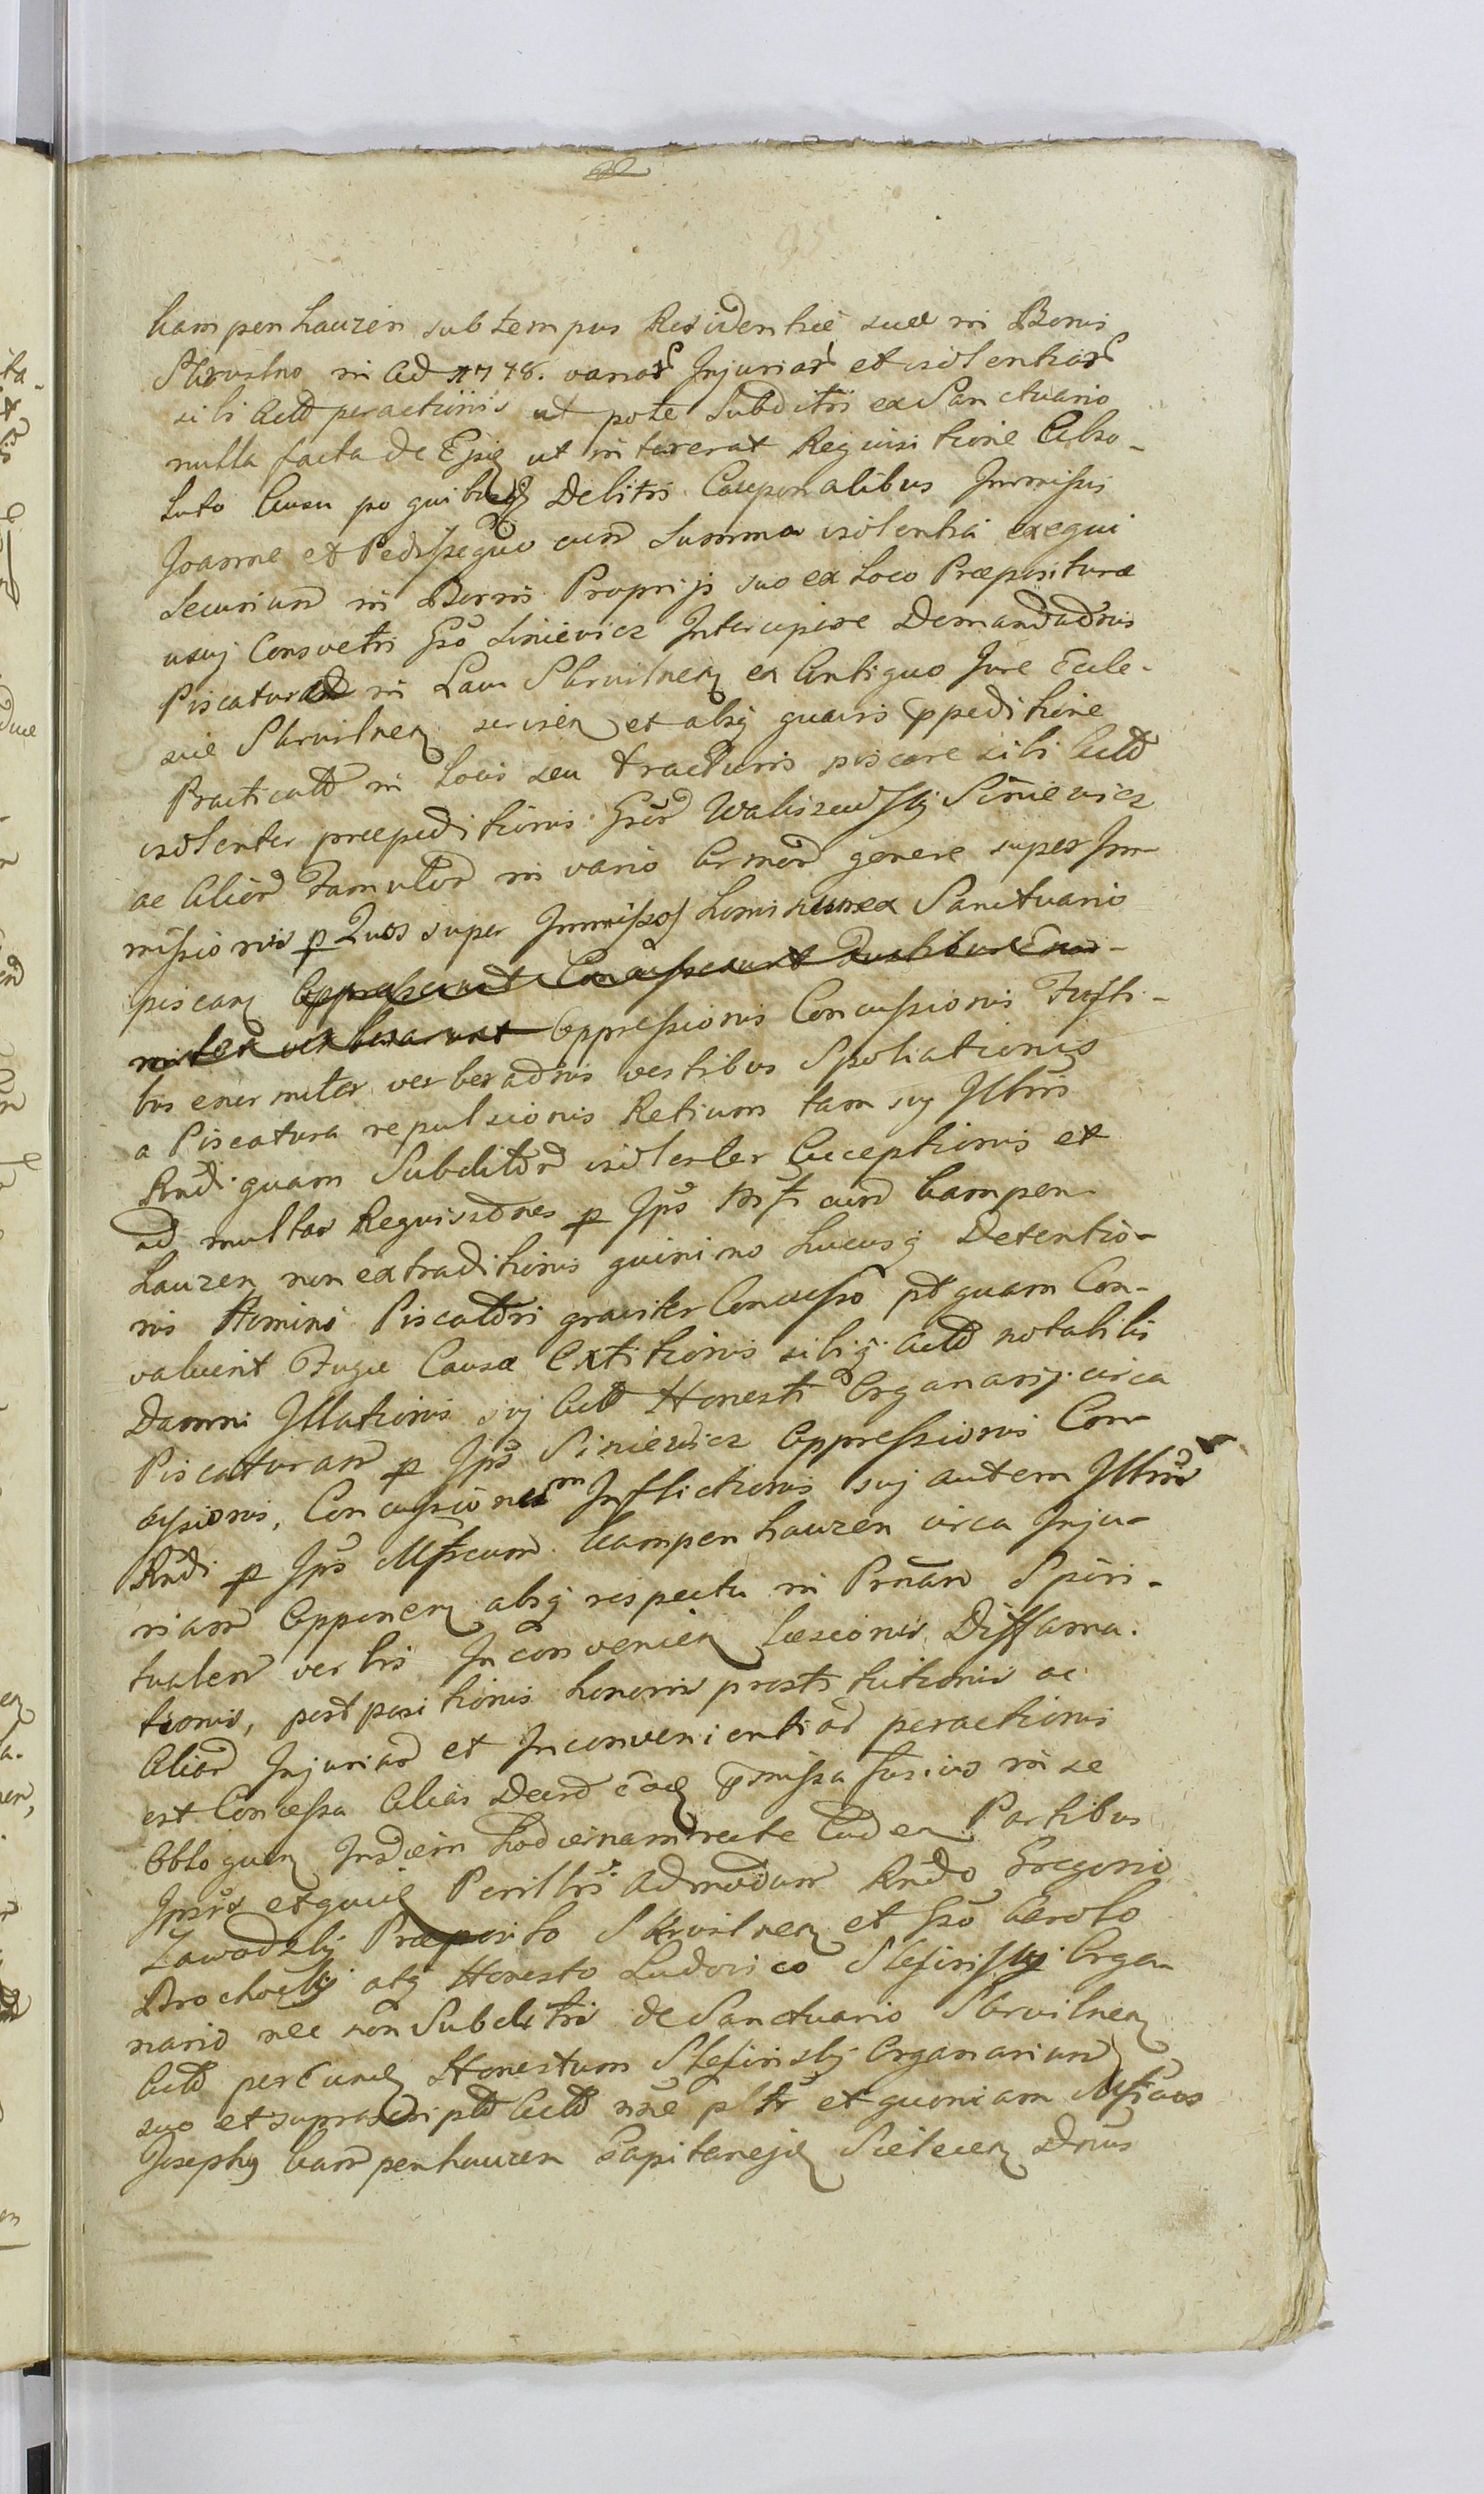 kampenhauzen sub tempus Residentiæ suæ in Bonis
Skrwilno in Ao 1778. variar Injuriar et violentiar
sibi Acto peractionis ut pote Subditis ex Sanctuario
nulla facta de Ejsq ut intererat Requisitione Abso-
luto Ausu po quibusq Debitis Cauponalibus Immissis
Joanne et Pedissequo cum summa violentia exequi
Securium in Bonis Proprijs suo ex Loco Præpositura
usuj Consvetis Gso Siniewicz Intercipere Demandaonis
Piscatura in Lacu Skrwilnen ex Antiquo Jure Eccle-
siæ Skrwilnen servien et absq quavis ppeditione
Practicato in Locis seu tracturis piscare sibi Acto
violenter præpeditionis Gsor Waliszewskj Siniewicz
ac Alior Famulor in vario Armor genere super Im-
missionis p Quos super Immissos homines ex Sanctuario
piscan Oppresserunt Concusserunt Fustibus Enor-
miter verberarunt Oppressionis Concussionis Fusti-
bus enormiter verberaonis vestibus Spoliationis
a Piscatura repulsionis Retium tam suj Illris
Rndi quam Subditor violenter Acceptionis et
ad multas Requisiones p Ips Mfcum kampen-
hauzen non extraditionis quinimo hucusq Detentio-
nis Homini Piscatori graviter Concusso pt quam Con-
valuerit Fugæ Causæ Extitionis sibiq Acto notabilis
Damni Illationis suj Acto Honesti Organarij circa
Piscaturam p Ips Siniewicz Oppressionis Con-
cussionis, Concussionem Inflictionis suj autem Illris
Rndi p Ips Mfcum kampenhauzen circa Inju-
riam Opponen absq respectu in Prnam Spiri-
tualem verbis Inconvenien Læsionis Diffama-
tionis, postpositionis honoris prostitutionis ac
Alior Injuriar et Inconvenientiar peractionis
est Concessa Alias Decro eoq pmissa fusius in se
Obloquen Insciem hodiernam recte Caden Partibus
Ipsis etquie Perillri Admodum Rndo Gregorio
Zawadzkj Præposito Skrwilnen et Gso Carolo
Brochockj atq Honesto Ludovico Slesinskj Orga-
nario nec non Subditis de Sanctuario Skrwilnen
Acto per eund Honestum Slesinskj Organarium
suo et suprascripto Acto nne pltr et quoniam Mfcus
Josephus kampenhauzen Capitanejd Sielecen Dnus